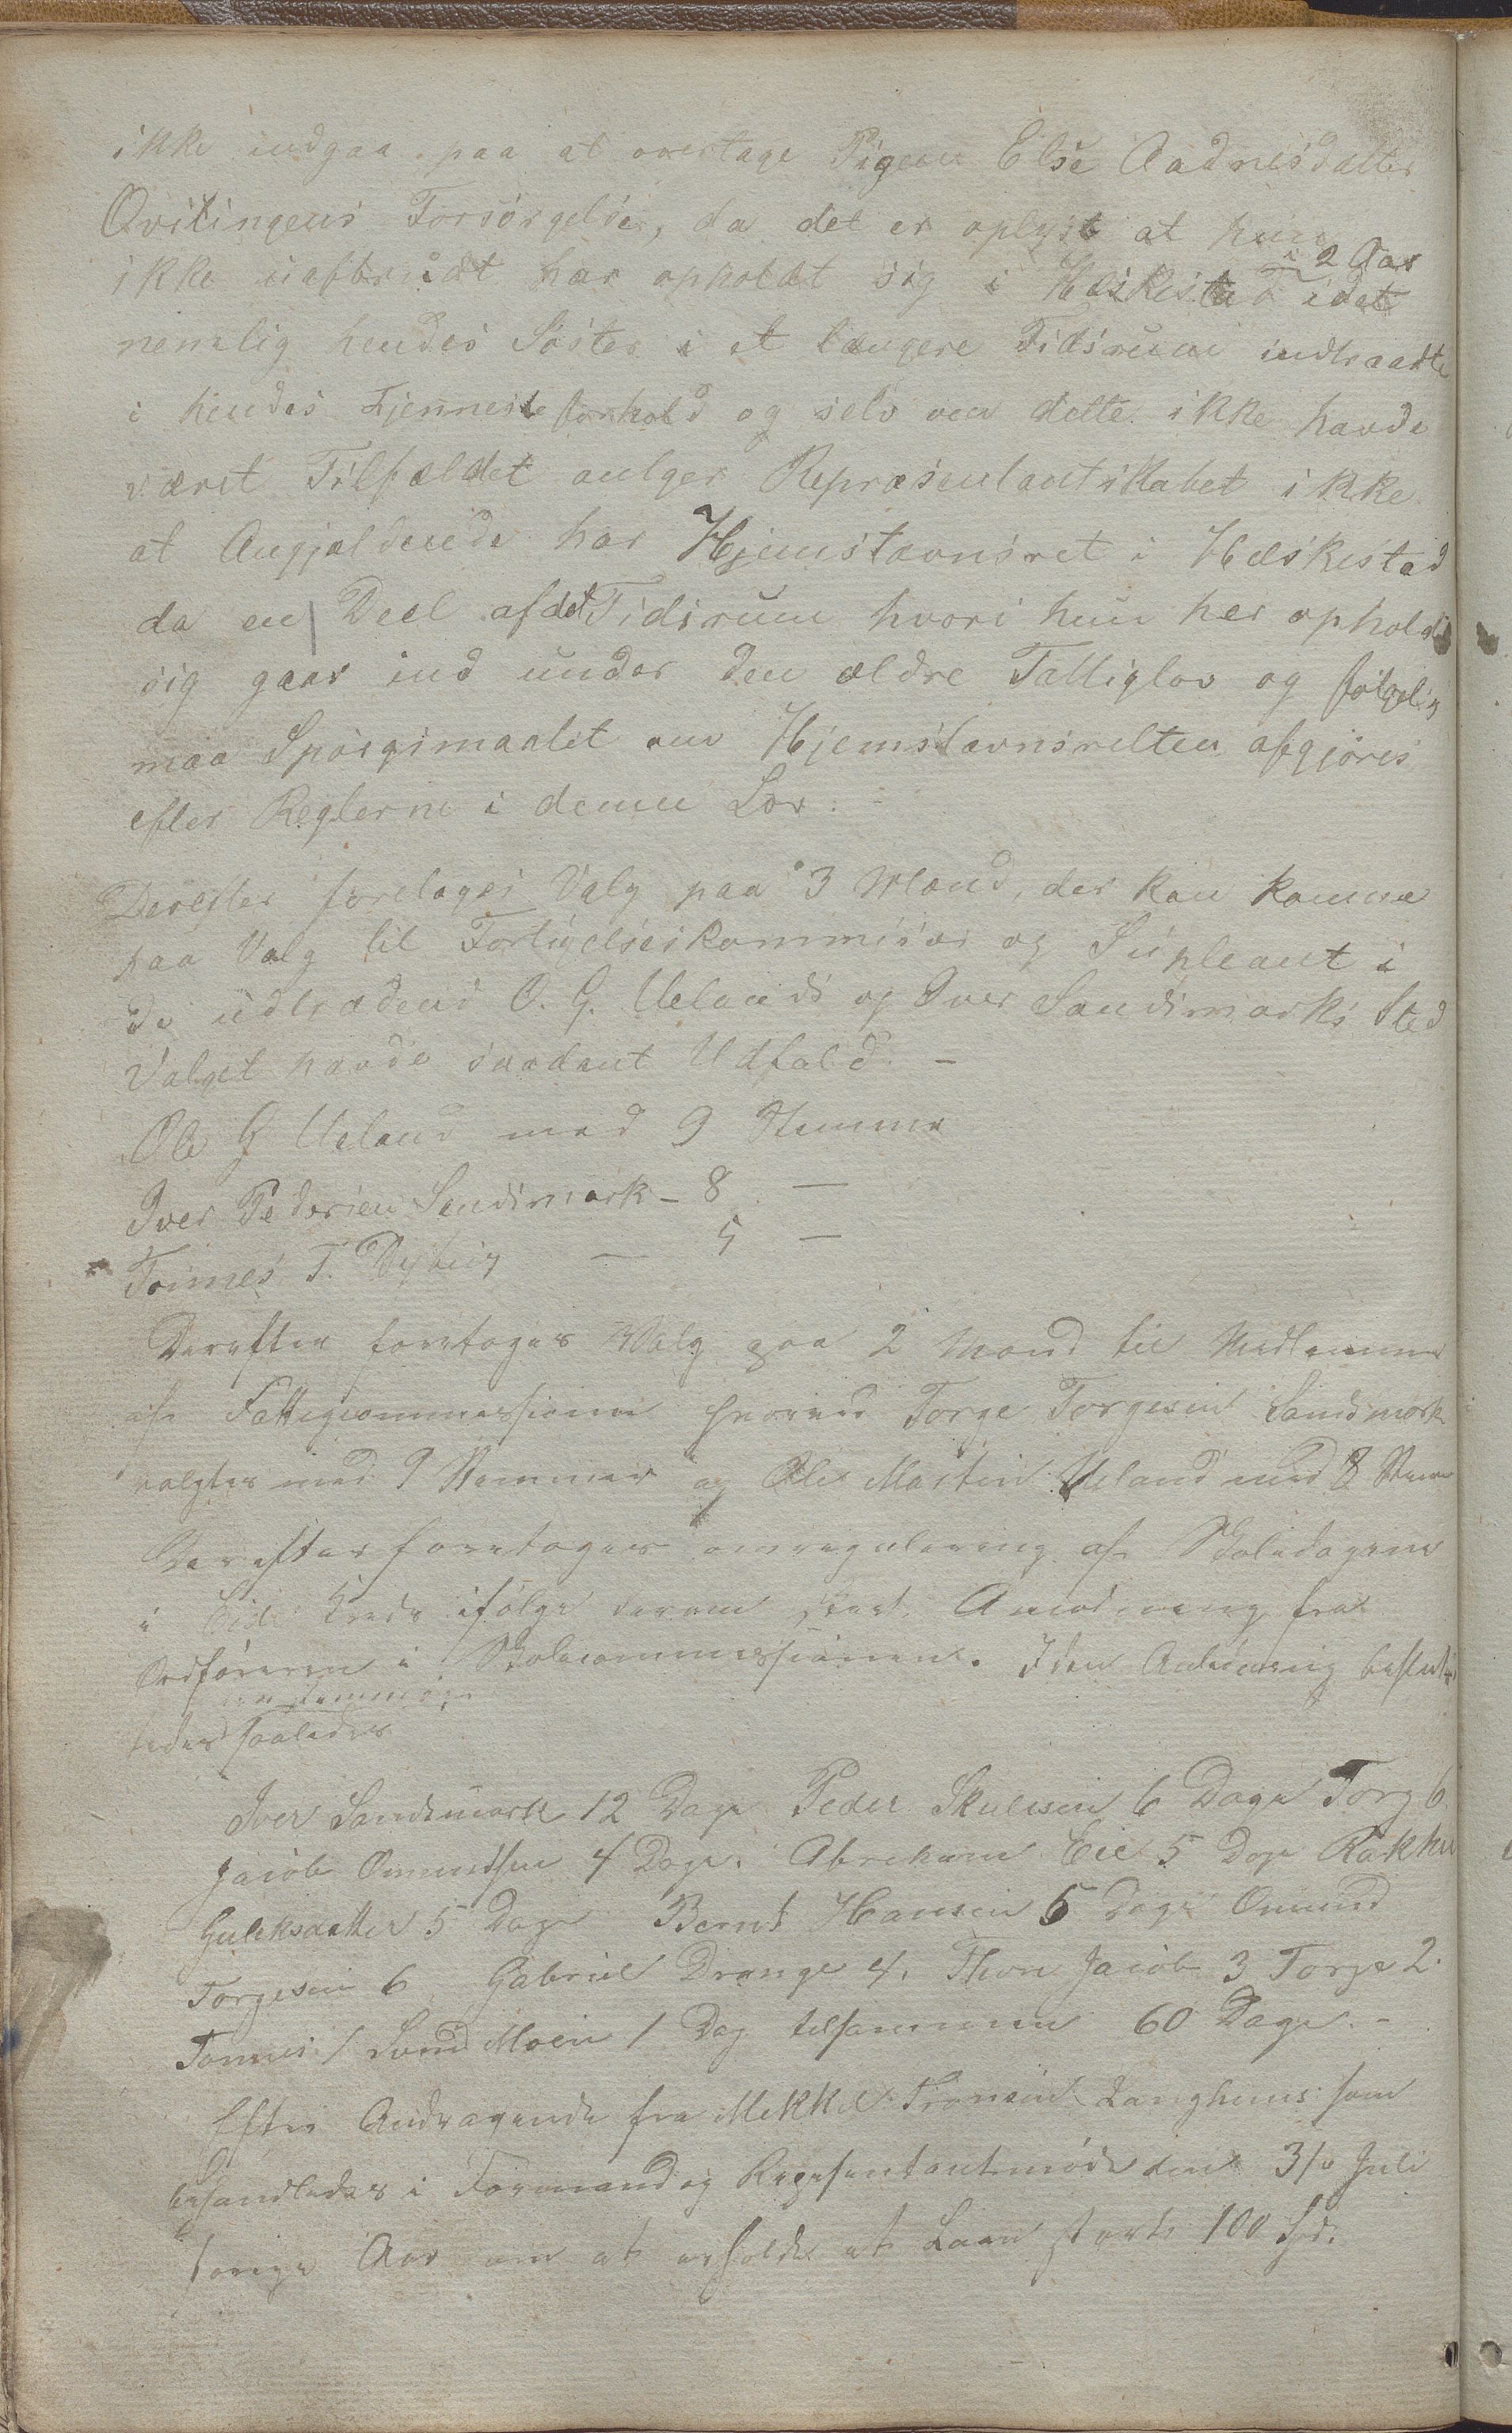 ikke indgaa paa at overtage Pigen Else Aadnesdatter
Qvitingens Forsörgelse, da det er oplyst at hun
ikke uafbrudt har opholdt sig i Hæskestad i 2 Aar idet
nemlig hendes Söster i et længere Tidsrum indtraadte
i hendes Tjenneste forhold og selv om dette ikke havde
været Tilfældet antager Repræsentantskabet ikke
at Angjældende har Hjemstavnsret i Hæskestad
da en Deel af det Tidsrum hvori hun her opholdt
sig gaar ind under den ældre Fattiglov og fölgelig
maa Spörgsmaalet om Hjemstavnsretten afgjöres
efter Reglerne i denne Lov. -
Derefter foretoges Valg paa 3 Mænd, der kan komme
paa Valg til Forligelseskommisær og Supleant i
de udtrædend O. G. Uelands og Iver Sandsmarks Sted
Valget havde saadant Udfald. -
Ole G Ueland med 9 Stemmer
Iver Pedersen Sandsmark - 8 -
Tönnes T. Dybing - 5 -
Derefter foretoges Valg paa 2 Mænd til Medlemmer
af Fattigcommissionen hvorved Torge Torgesen Sandsmark
valgtes med 9 Stemmer og Ole Martin Ueland med 8 Stem
Derefter foretoges omregulering af Skoledagene
i Eide Kreds ifölge derom skeet Anmodning fra
Ordföreren i Skolecommissionen. I den Anledning beslut
enstemmig
tedes saaledes
Iver Sandsmark 12 Dage Peder Skulesen 6 Dage Torg 6
Jacob Omundsen 4 Dage. Abraham Eie 5 Dage Rakkel
Guleksdatter 5 Dage Bernt Hansen 5 Dage Omund
Torgesen 6 Gabriel Drange 4. Thore Jacob 3 Torge 2.
Tönnes 1 Svend Moen 1 Dag tilsammen 60 Dage. -
Efter Andragende fra Mekkel Tronsen Langhuus som
behandledes i Formand og Repesentantmöde den 31te Juli
forige Aar om at erholde et Laan stort 100 Spd.